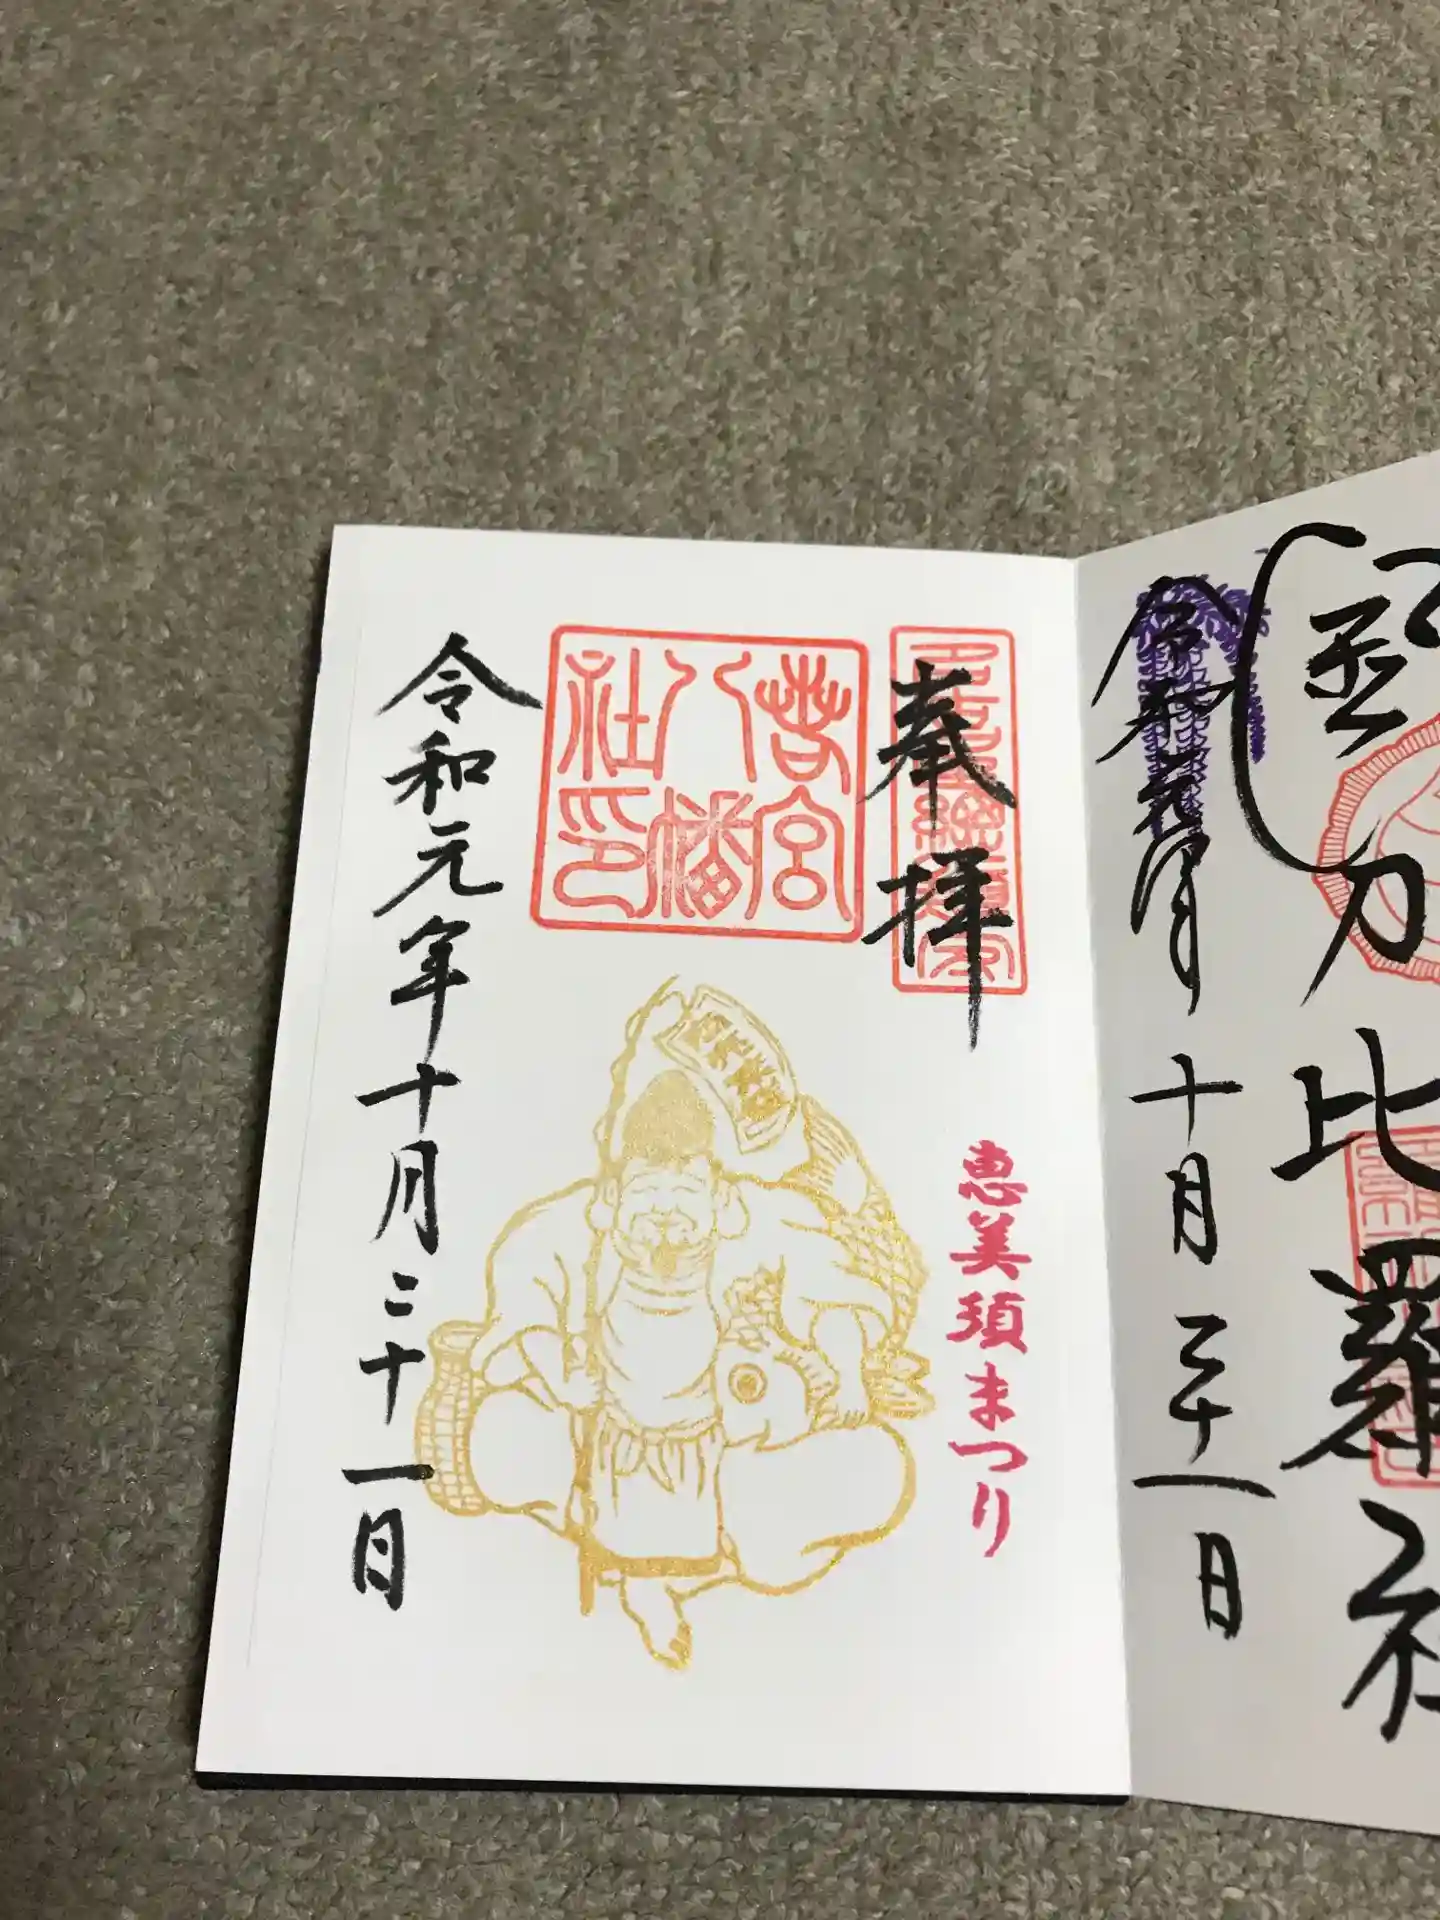 刀比羅社
令和元年
十月三十一日
奉拝
恵美須まつり
若宮
八幡
社印
令和元年十月三十一日